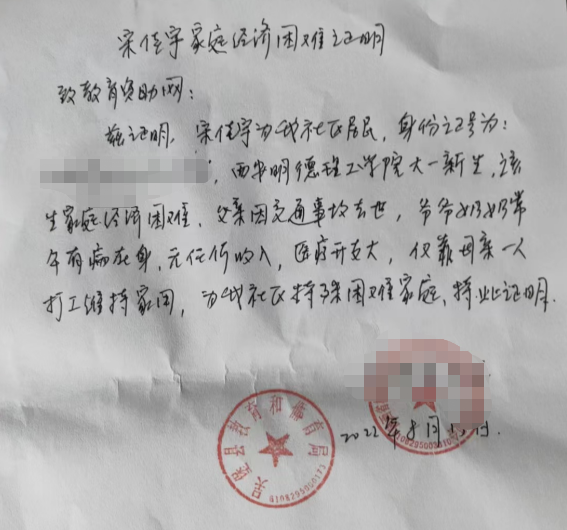 宋佳宇家庭经济困难证明
致教育资助网：
兹证明，宋佳宇为我社区居民，身份证号为：
，西安明德理工学院大一新生，该
生家庭经济困难，父亲因交通事故去世，爷爷奶奶常
年有病在身，无任何收入，医疗开支大，仅靠母亲一人
打工维持家用，为我社区特殊困难家庭，特此证明．
2022年8月 日.
吴堡县教育和体育局
6108295000135